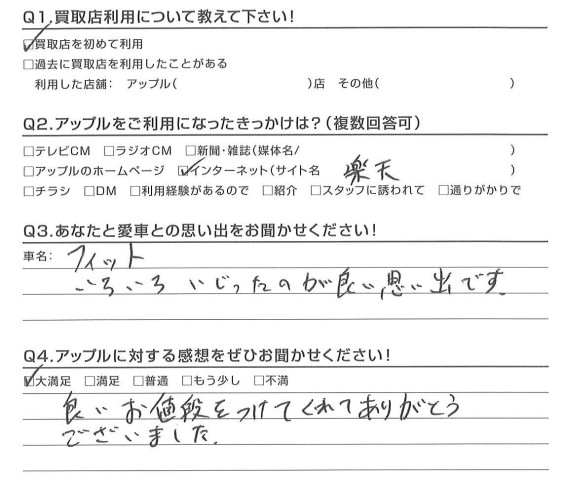 Q1.買取店利用について教えて下さい!
☑買取店を初めて利用
□過去に買取店を利用したことがある
利用した店舗: アップル( )店 その他( )
Q2.アップルをご利用になったきっかけは?(複数回答可)
□テレビCM □ラジオCM □新聞・雑誌(媒体名/ )
□アップルのホームページ ☑インターネット(サイト名 楽天 )
□チラシ □DM □利用経験があるので □紹介 □スタッフに誘われて □通りがかりで
Q3.あなたと愛車との思い出をお聞かせください!
車名: フィット
いろいろ いじったのが良い思い出です.
Q4.アップルに対する感想をぜひお聞かせください!
☑大満足 □満足 □普通 □もう少し □不満
良いお値段をつけてくれてありがとう
ございました.